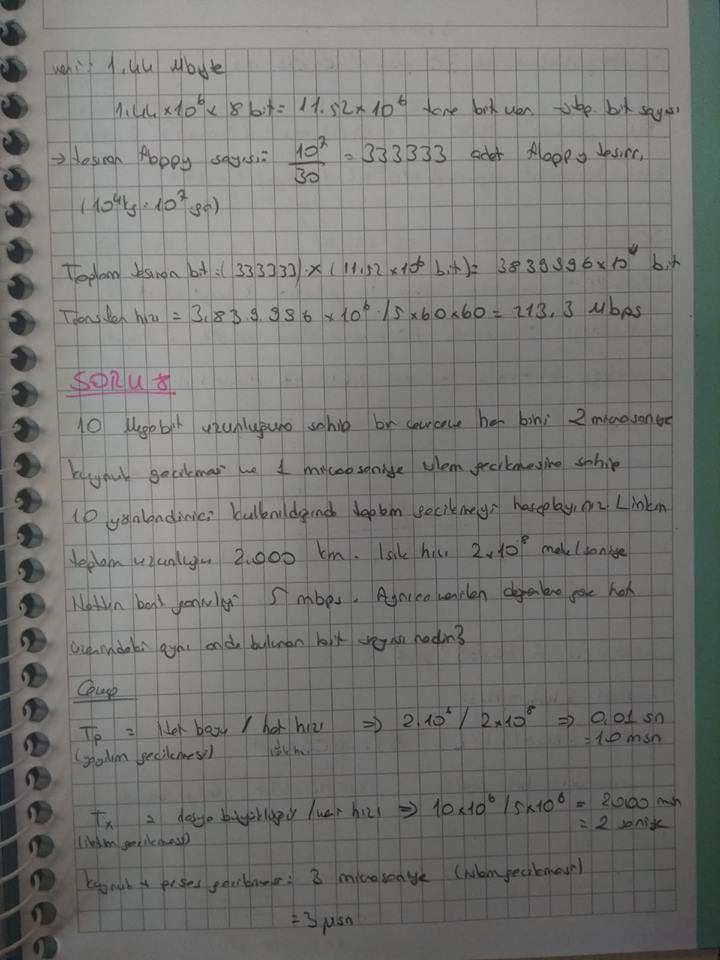 veri: 1.44 Mbyte
1.44x10⁶x 8 bit = 11.52x10⁶ tane bit var. bit sayısı
→ taşınan floppy sayısı: 10⁷/30 = 333333 adet floppy taşınır.
(10⁴kg = 10⁷ gr)
Toplam taşınan bit: (333333) x (11.52x10⁶ bit) = 3839996x10⁶ bit
Transfer hızı = 3.839.996 x 10⁶ / 5x60x60 = 213.3 Mbps
SORU 8
10 Megabit uzunluğuna sahip bir çerçeve her birini 2 microsaniye
kuyruk gecikmesi ve 1 microsaniye işlem gecikmesine sahip
10 yönlendirici kullanıldığında toplam gecikmeyi hesaplayınız. Linkin
toplam uzunluğu 2.000 km. Işık hızı 2x10⁸ metre/saniye
Hattın bant genişliği 5 mbps. Ayrıca verilen değerlere göre hat
üzerindeki aynı anda bulunan bit sayısı nedir?
Cevap
Tp = Hat boyu / hat hızı ⇒ 2.10⁶ / 2x10⁸ ⇒ 0,01 sn
(yayılım gecikmesi) = 10 msn
Tx = dosya büyüklüğü / hızı ⇒ 10x10⁶ / 5x10⁶ = 2000 msn
(iletim gecikmesi) = 2 saniye
kuyruk + proses gecikmesi: 3 microsaniye
= 3 µsn